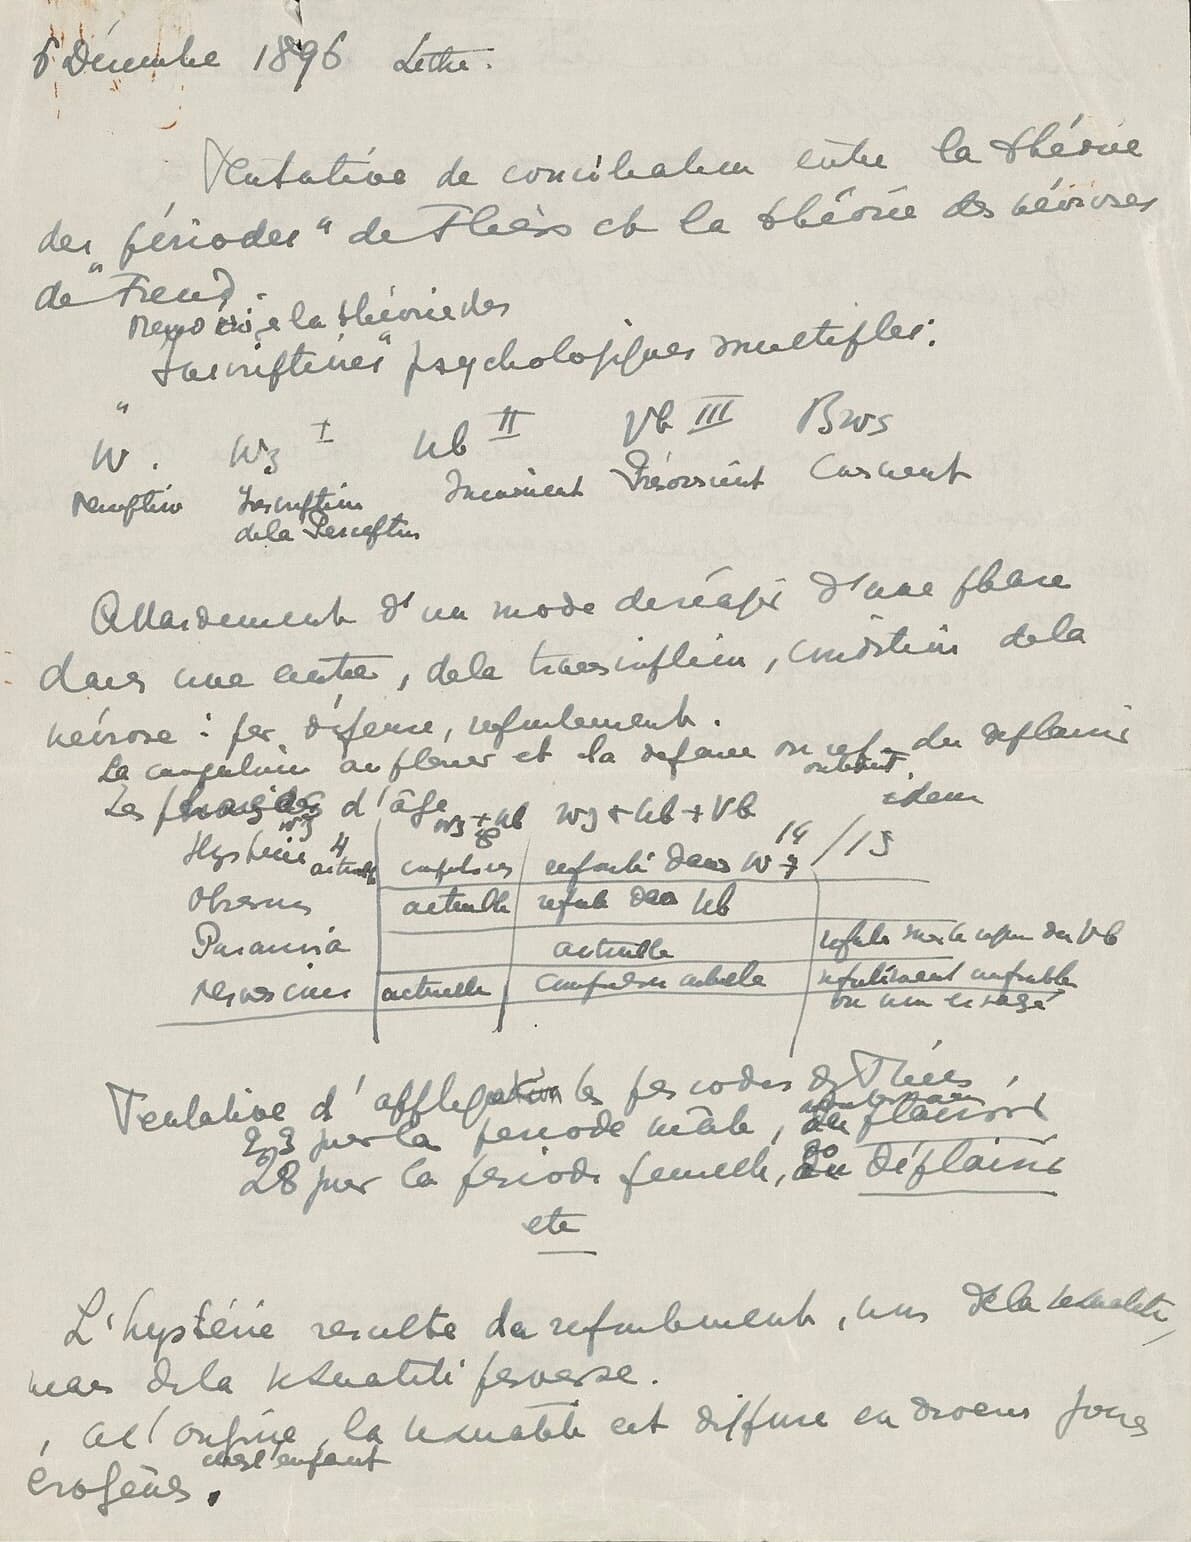 6 Décembre 1896 Lettre.
Tentative de conciliation entre la théorie
des "périodes" de Fliess et la théorie des névroses
de Freud.
à la théorie des
"Inscriptions" psychologiques multiples.
W. Wz I Ub II Vb III Bws
Perception Inscription Inconscient Préconscient Conscient
de la Perception
Attardement d'un mode de réagir d'une phase
dans une autre, de la transcription, condition de la
névrose : par défense, refoulement.
La compulsion au plaisir et la défense ou ref. du déplaisir
Les d'âge idem
Wz Wz + Ub Wz + Ub + Vb
Hystérie 4 actuelle compulsion refoulé dans W 14 / 15
Obsession actuelle refoulé dans Ub
Paranoia actuelle
Perversion actuelle compulsion actuelle refoulement impossible
ou non essayé
Tentative d'application les périodes de Fliess,
23 pour la période mâle, du plaisir
28 pour la période femelle, du déplaisir
etc
L'hystérie résulte du refoulement, non de la sexualité,
mais de la sexualité perverse.
, à l'origine, la sexualité est diffuse en diverses zones
chez l'enfant
érogènes.